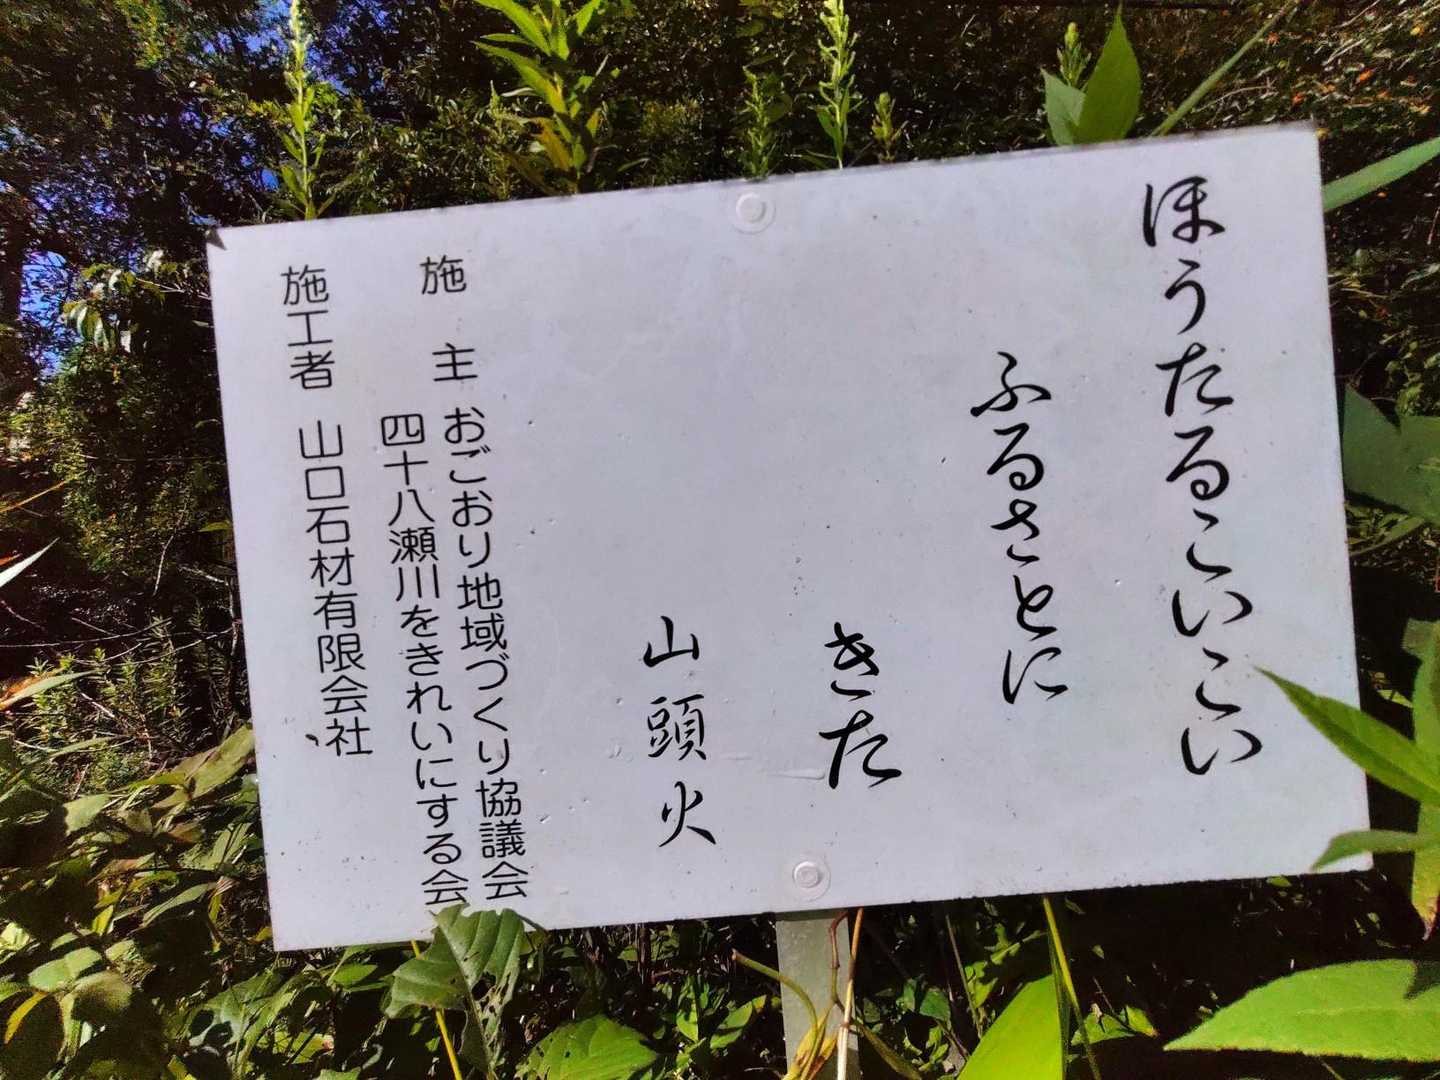 ほうたるこいこい
ふるさとに
きた
山頭火
施　主　おごおり地域づくり協議会
四十八瀬川をきれいにする会
施工者　山口石材有限会社